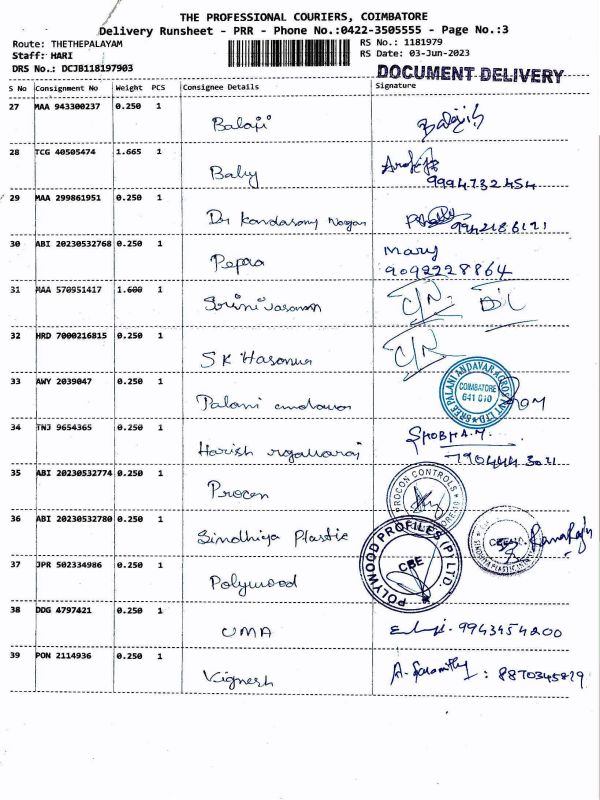 THE PROFESSIONAL COURIERS, COIMBATORE
Delivery Runsheet - PRR - Phone No.:0422-3505555 - Page No.:3
Route: THETHEPALAYAM
Staff: HARI
DRS No.: DCJB118197903
RS No.: 1181979
RS Date: 03-Jun-2023
DOCUMENT DELIVERY
S No Consignment No Weight PCS Consignee Details Signature
27 MAA 943300237 0.250 1 Balaji
28 TCG 40505474 1.665 1 Baby
9994732454
29 MAA 299861951 0.250 1 Dr Kandasamy Nagar
9942186121
30 ABI 20230532768 0.250 1 Pepra Mary
9092228864
31 MAA 570951417 1.600 1 Srinivasanan C/N. D/L
32 HRD 7000216815 0.250 1 SK Hasanur C/N
33 AWY 2039047 0.250 1 Palani andavar
SREE PALANI ANDAVAR AGRO PVT LTD
COIMBATORE
641 010
34 TNJ 9654365 0.250 1 Harish SHOBHA.M.
35 ABI 20230532774 0.250 1 Procon
PROCON CONTROLS
36 ABI 20230532780 0.250 1 Sindhiya Plastic
37 JPR 502334986 0.250 1 Polywood
POLYWOOD PROFILES (P) LTD.
CBE
38 DDG 4797421 0.250 1 UMA 9943454200
39 PON 2114936 0.250 1 Vignesh : 8870345829